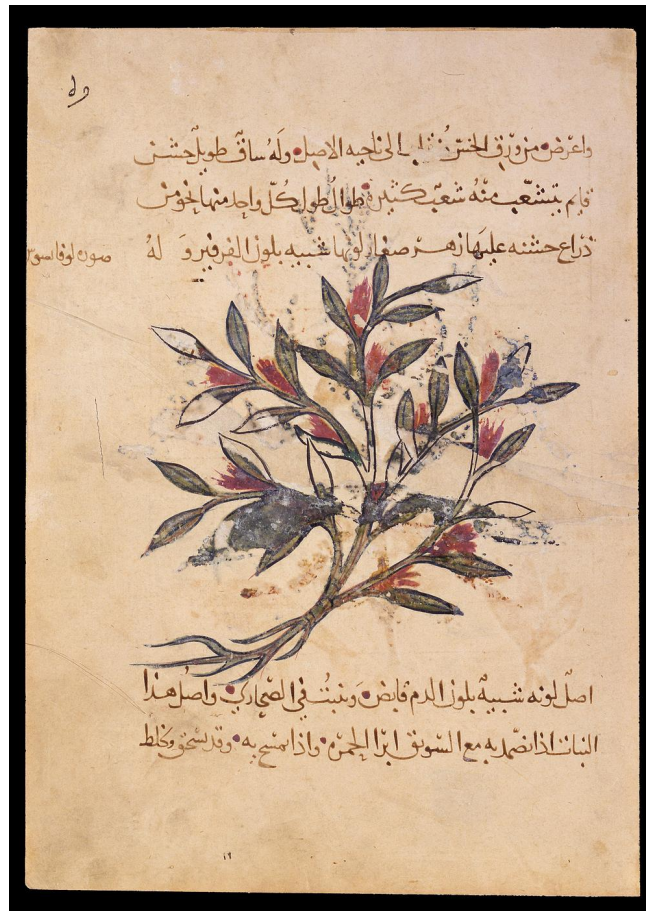 واعرض من ورق الخس الى ناحيه الاصل وله ساق طويل خشن
قايم يتشعب منه شعب كثيره طوال طول كل واحد منها نحو من
ذراع خشنه عليها زهر صغار لونها شبيه بلون الفرفير و له
صوره لوفاسوس
اصل لونه شبيه بلون الدم قابض وينبت في الصحاري واصل هذا
النبات اذا تضمد به مع السويق ابرا الحمره واذا تمسح به وقد سحق وخلط
١٩